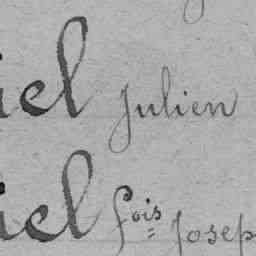 iel Julien
iel fois Josep